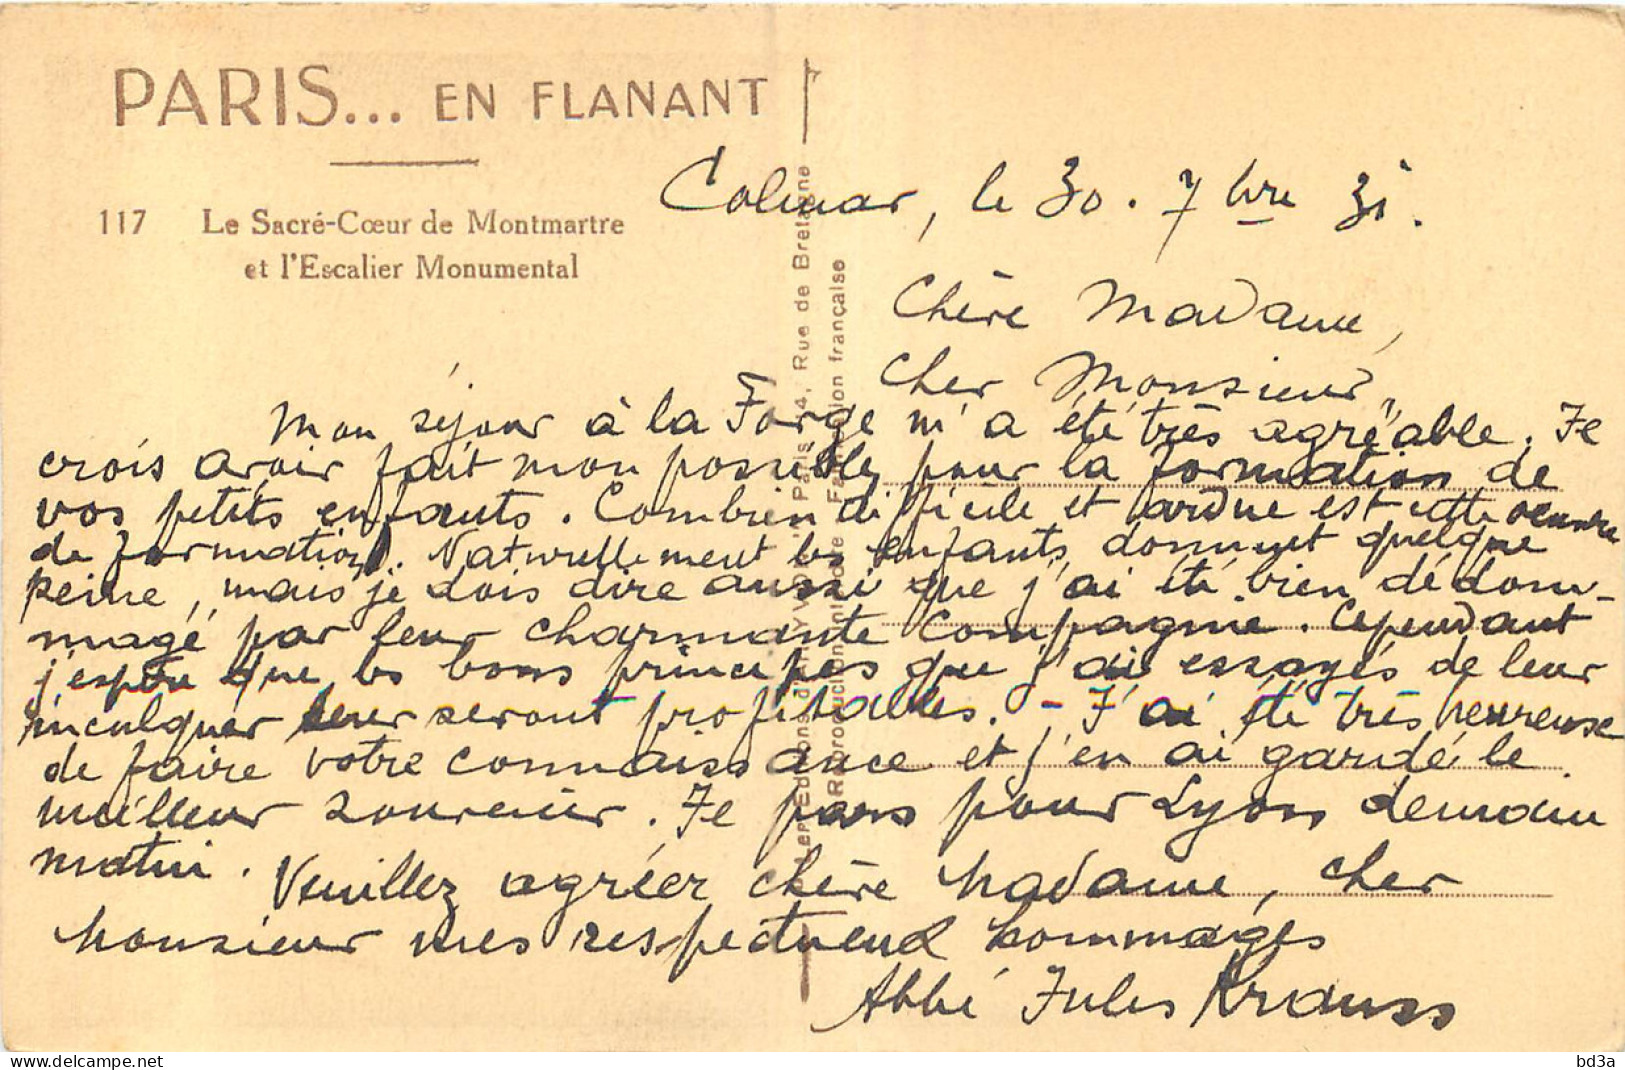 PARIS... EN FLANANT
117 Le Sacré-Cœur de Montmartre
et l'Escalier Monumental
Rue de Bretagne
française
Colmar, le 30. 7bre 31.
Chère Madame,
cher Monsieur,
Mon séjour à la Forge m'a été très agréable. Je
crois avoir fait mon possible pour la formation de
vos petits enfants. Combien difficile et ardue est cette oeuvre
de formation. Naturellement les enfants donnent quelque
peine, mais je dois dire aussi que j'ai été bien dédom-
magé par leur charmante compagnie. Cependant
j'espère que les bons principes que j'ai essayés de leur
inculquer leur seront profitables. - J'ai été très heureuse
de faire votre connaissance et j'en ai gardé le
meilleur souvenir. Je pars pour Lyon demain
matin. Veuillez agréer chère Madame, cher
Monsieur mes respectueux hommages
Abbé Jules Krauss
delcampe.net
bd3a